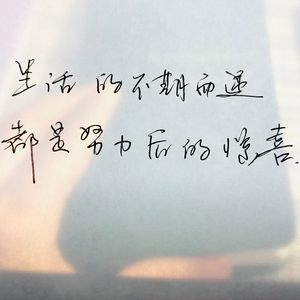 生活的不期而遇
都是努力后的惊喜.